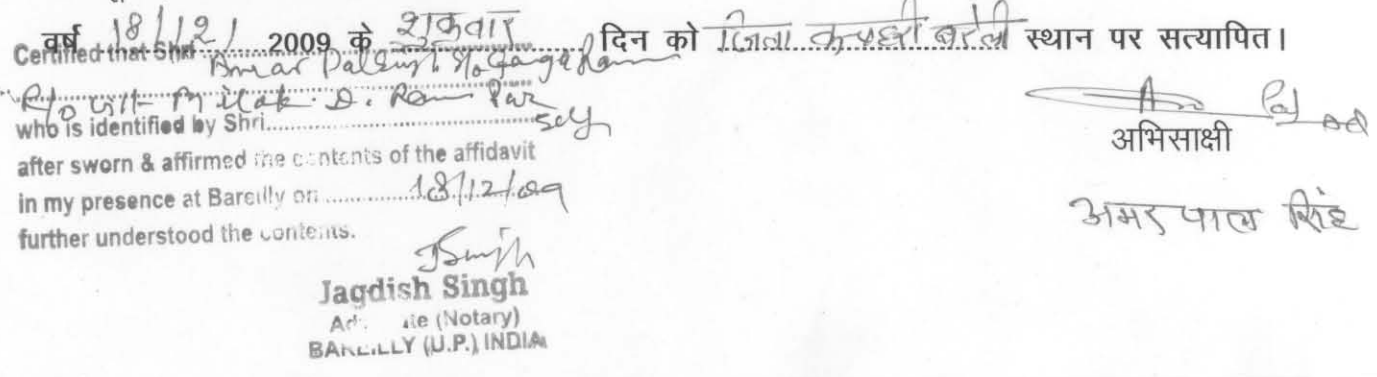 वर्ष 18/12/ 2009 के शुक्रवार दिन को जिला कचहरी बरेली स्थान पर सत्यापित।
Certified that Shri Amar Pal Singh S/o Ganga Ram
R/o Vill- Milak. D. Rampur
who is identified by Shri Self
after sworn & affirmed the contents of the affidavit
in my presence at Bareilly on 18/12/09
further understood the contents.
JSingh
Jagdish Singh
Advocate (Notary)
BAREILLY (U.P.) INDIA
अभिसाक्षी
अमर पाल सिंह